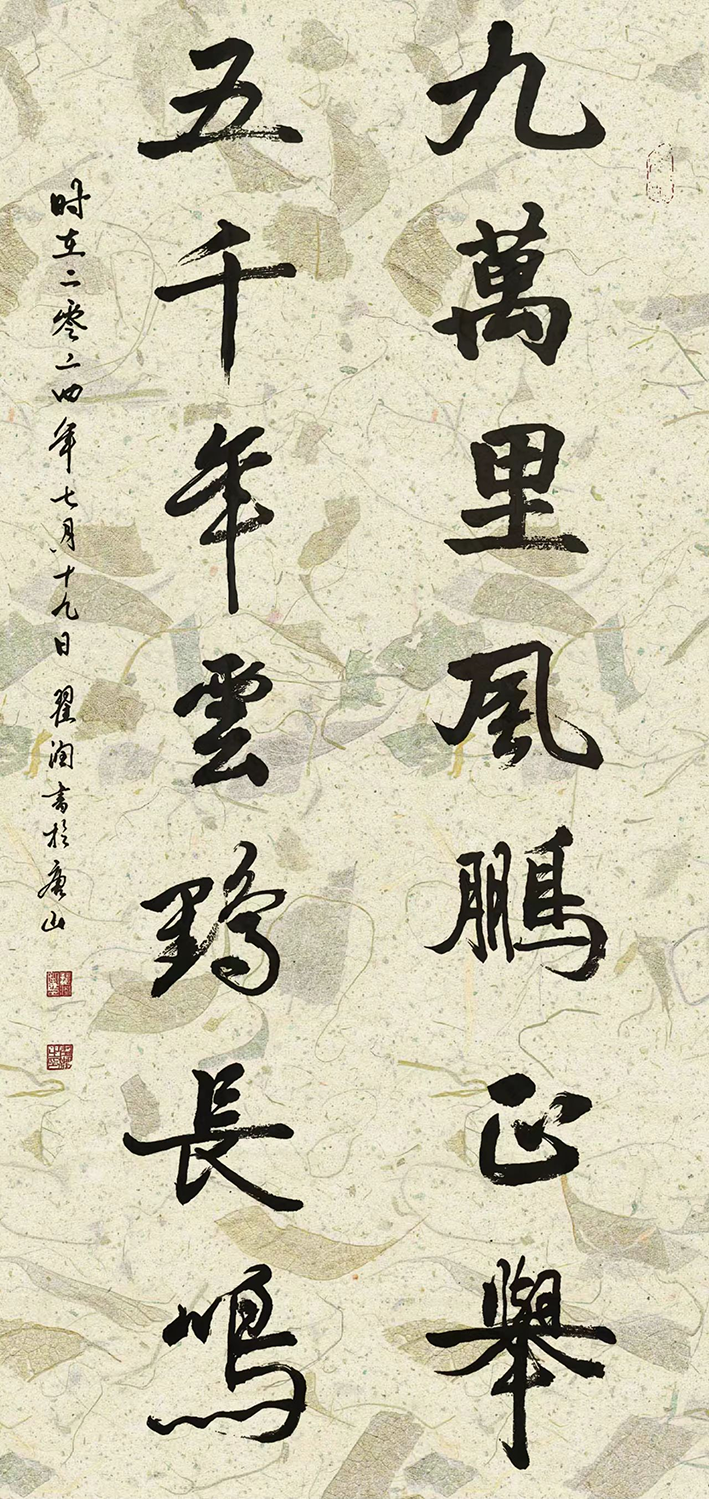 九萬里風鵬正舉
五千年雲鶴長鳴
时在二零二四年七月十九日 翟润書於唐山